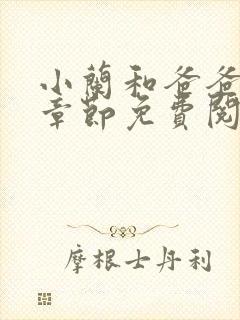 小蘭和爸爸
章節免費閱
摩根士丹利